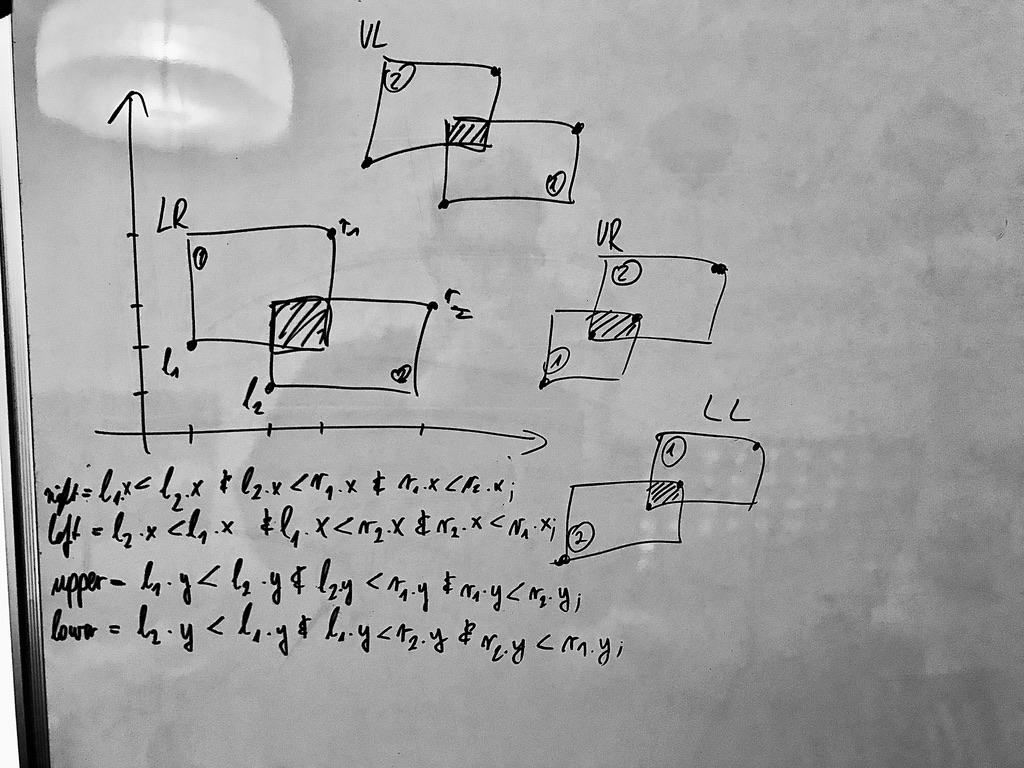 UL
2
1
LR
r1
1
l1
r2
2
l2
UR
2
1
LL
1
2
right = l1.x < l2.x & l2.x < r1.x & r1.x < r2.x;
left = l2.x < l1.x & l1.x < r2.x & r2.x < r1.x;
upper = l1.y < l2.y & l2.y < r1.y & r1.y < r2.y;
lower = l2.y < l1.y & l1.y < r2.y & r2.y < r1.y;